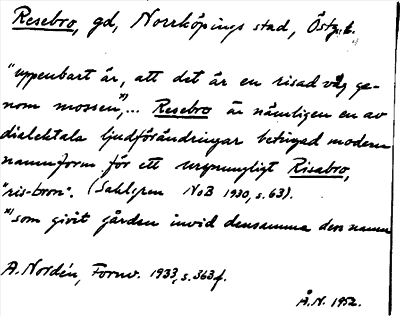 Resebro, gd, Norrköpings stad, Östg. l.
"uppenbart är, att det är en risad väg ge-
nom mossen"x)... Resebro är nämligen en av
dialektala ljudförändringar betingad modern
namnform för ett ursprungligt Risabro,
"ris-bron". (Sahlgren NoB 1930, s. 63).
x) som givit gården invid densamma dess namn
A. Nordén, Fornv. 1933, s. 363 f.
Å.N. 1952.